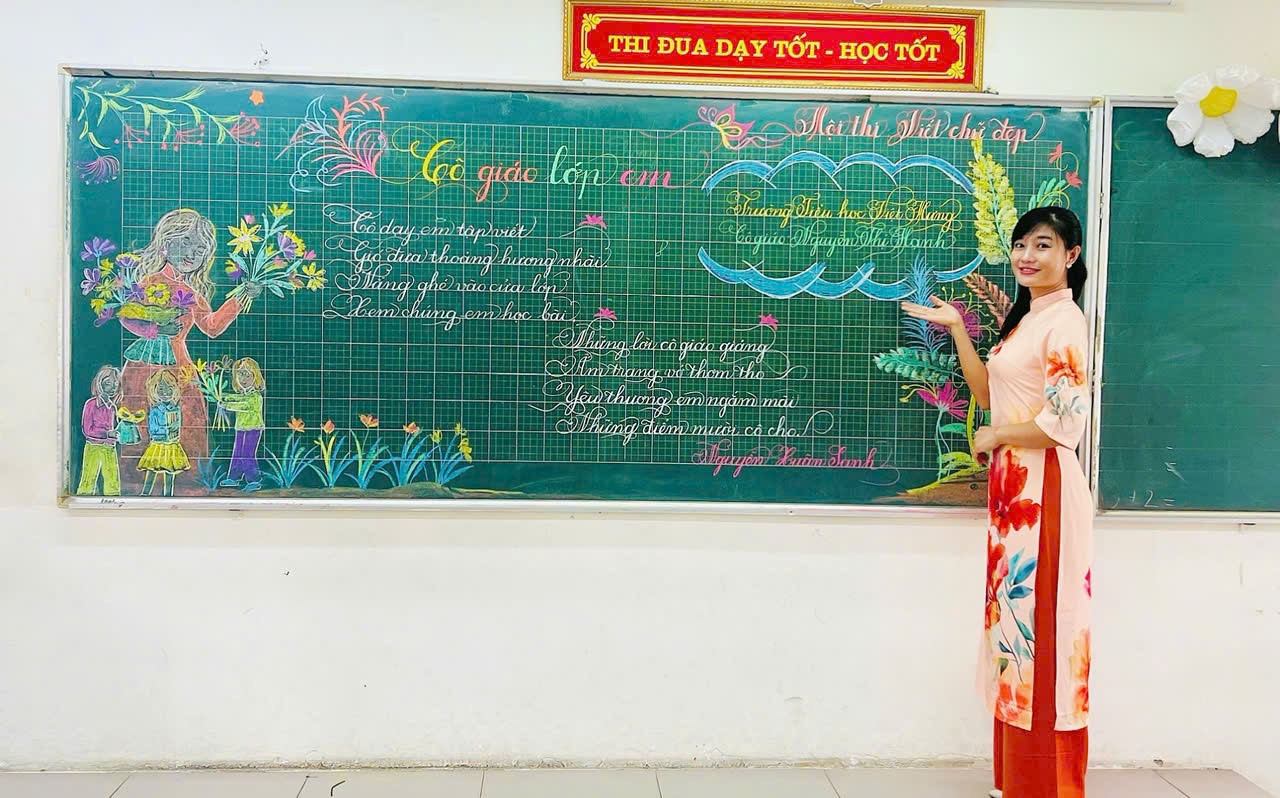 THI ĐUA DẠY TỐT - HỌC TỐT
Hội thi Viết chữ đẹp
Cô giáo lớp em
Trường Tiểu học Việt Hưng
Cô giáo Nguyễn Thị Hạnh
Cô dạy em tập viết
Gió đưa thoảng hương nhài
Nắng ghé vào cửa lớp
Xem chúng em học bài
Những lời cô giáo giảng
Ấm trang vở thơm tho
Yêu thương em ngắm mãi
Những điểm mười cô cho.
Nguyễn Xuân Sanh